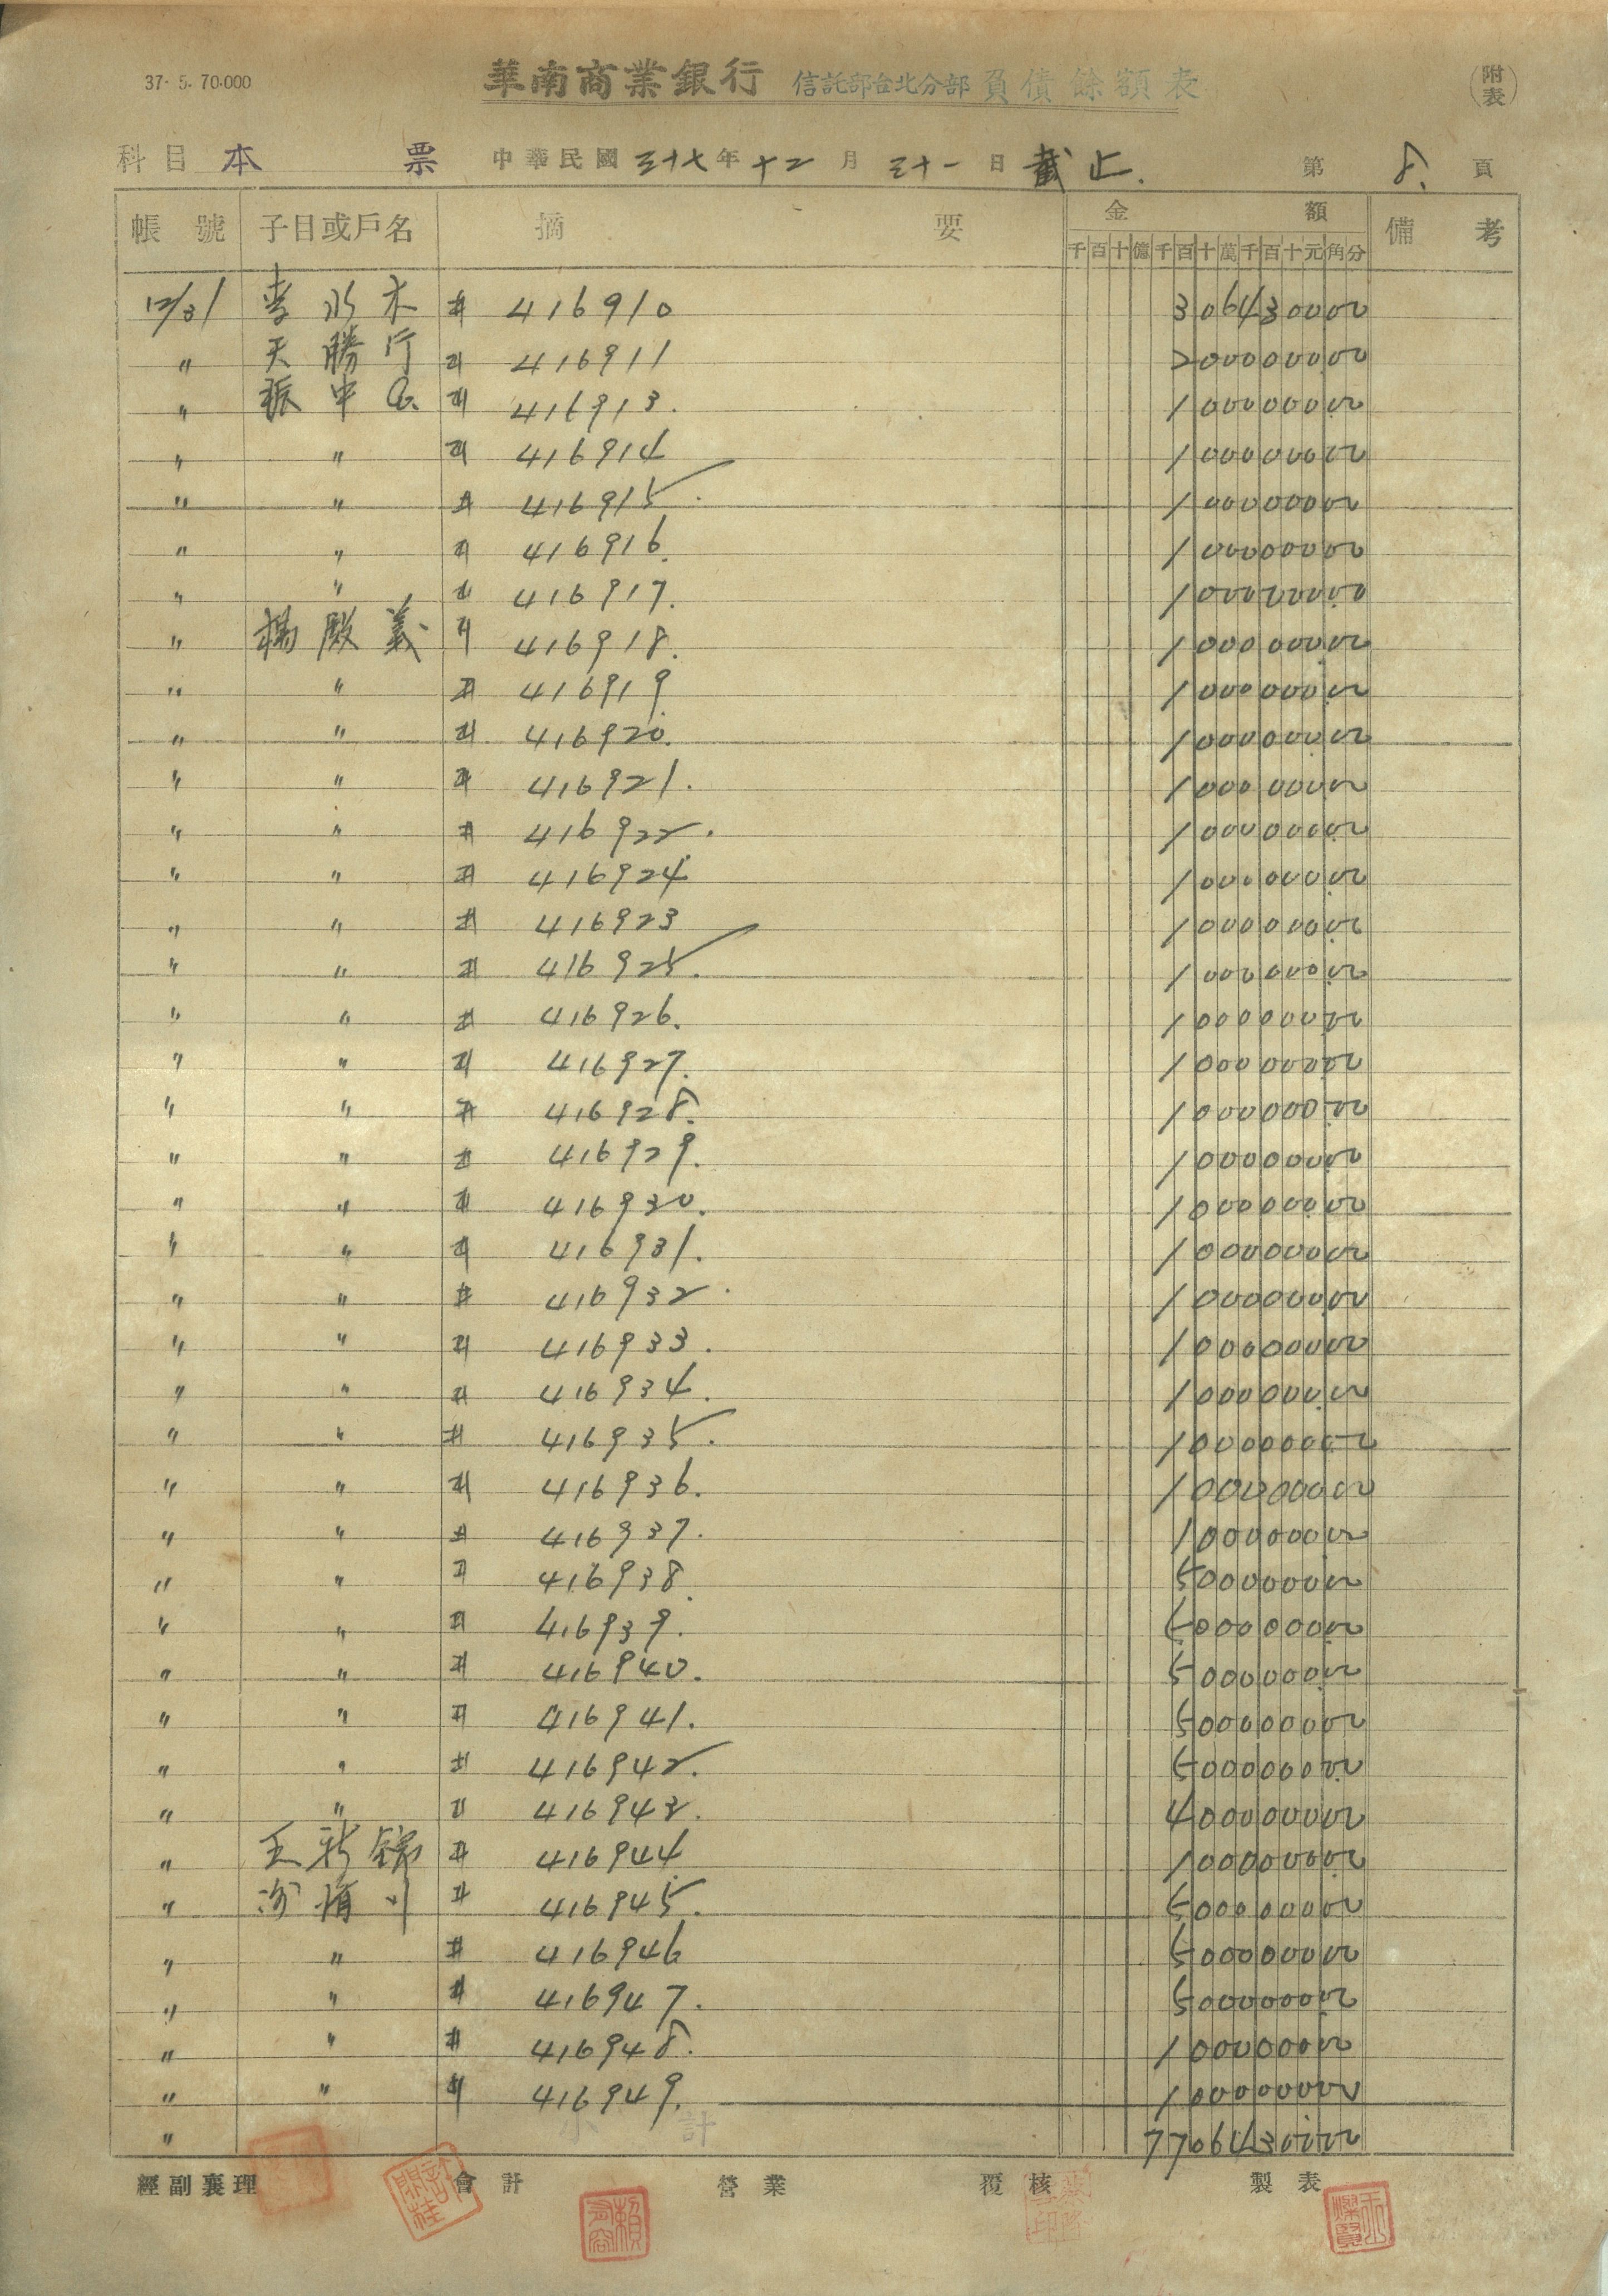 37. 5. 70.000
華南商業銀行 信託部台北分部 負債餘額表 (附表)
科目 本票 中華民國三十七年十二月三十一日截止. 第8.頁
帳號 子目或戶名 摘要 金額 備考
千百十億千百十萬千百十元角分
12/31 李水木 # 416910 306430000
〃 天勝行 # 416911 200000000
〃 振中 # 416913. 100000000
〃 〃 # 416914 100000000
〃 〃 # 416915. 100000000
〃 〃 # 416916. 100000000
〃 〃 # 416917. 100000000
〃 楊殿義 # 416918. 100000000
〃 〃 # 416919. 100000000
〃 〃 # 416920. 100000000
〃 〃 # 416921. 100000000
〃 〃 # 416922. 100000000
〃 〃 # 416924 100000000
〃 〃 # 416923 100000000
〃 〃 # 416925. 100000000
〃 〃 # 416926. 100000000
〃 〃 # 416927. 100000000
〃 〃 # 416928. 100000000
〃 〃 # 416929. 100000000
〃 〃 # 416930. 100000000
〃 〃 # 416931. 100000000
〃 〃 # 416932. 100000000
〃 〃 # 416933. 100000000
〃 〃 # 416934. 100000000
〃 〃 # 416935. 100000000
〃 〃 # 416936. 100000000
〃 〃 # 416937. 100000000
〃 〃 # 416938. 500000000
〃 〃 # 416939. 500000000
〃 〃 # 416940. 500000000
〃 〃 # 416941. 500000000
〃 〃 # 416942. 500000000
〃 〃 # 416943. 400000000
〃 王新錦 # 416944. 100000000
〃 # 416945. 500000000
〃 〃 # 416946 500000000
〃 〃 # 416947. 500000000
〃 〃 # 416948. 100000000
〃 〃 # 416949. 100000000
〃 小計 7706430000
經副襄理 會計 營業 覆核 製表